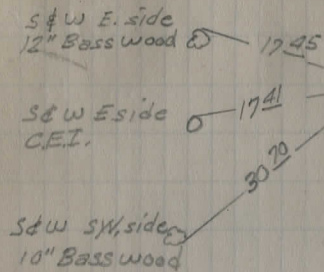 S&W E. side
12" Bass wood
17 45
S&W E side
17 41
C.E.I.
30 70
S&W SW, side
10" Bass wood